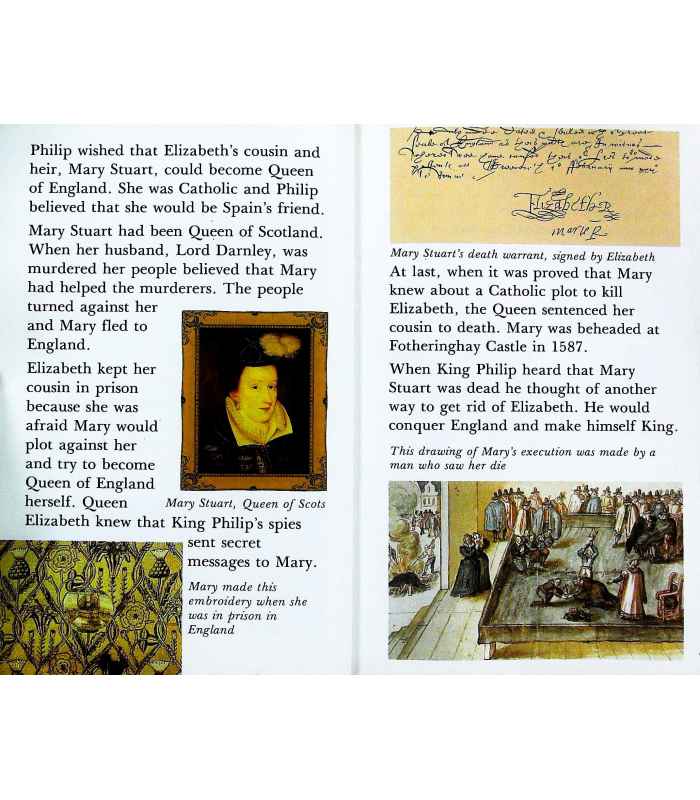 Philip wished that Elizabeth's cousin and
heir, Mary Stuart, could become Queen
of England. She was Catholic and Philip
believed that she would be Spain's friend.
Mary Stuart had been Queen of Scotland.
When her husband, Lord Darnley, was
murdered her people believed that Mary
had helped the murderers. The people
turned against her
and Mary fled to
England.
Elizabeth kept her
cousin in prison
because she was
afraid Mary would
plot against her
and try to become
Queen of England
herself. Queen
Mary Stuart, Queen of Scots
Elizabeth knew that King Philip's spies
sent secret
messages to Mary.
Mary made this
embroidery when she
was in prison in
England
Elizabeth R
Mary Stuart's death warrant, signed by Elizabeth
At last, when it was proved that Mary
knew about a Catholic plot to kill
Elizabeth, the Queen sentenced her
cousin to death. Mary was beheaded at
Fotheringhay Castle in 1587.
When King Philip heard that Mary
Stuart was dead he thought of another
way to get rid of Elizabeth. He would
conquer England and make himself King.
This drawing of Mary's execution was made by a
man who saw her die